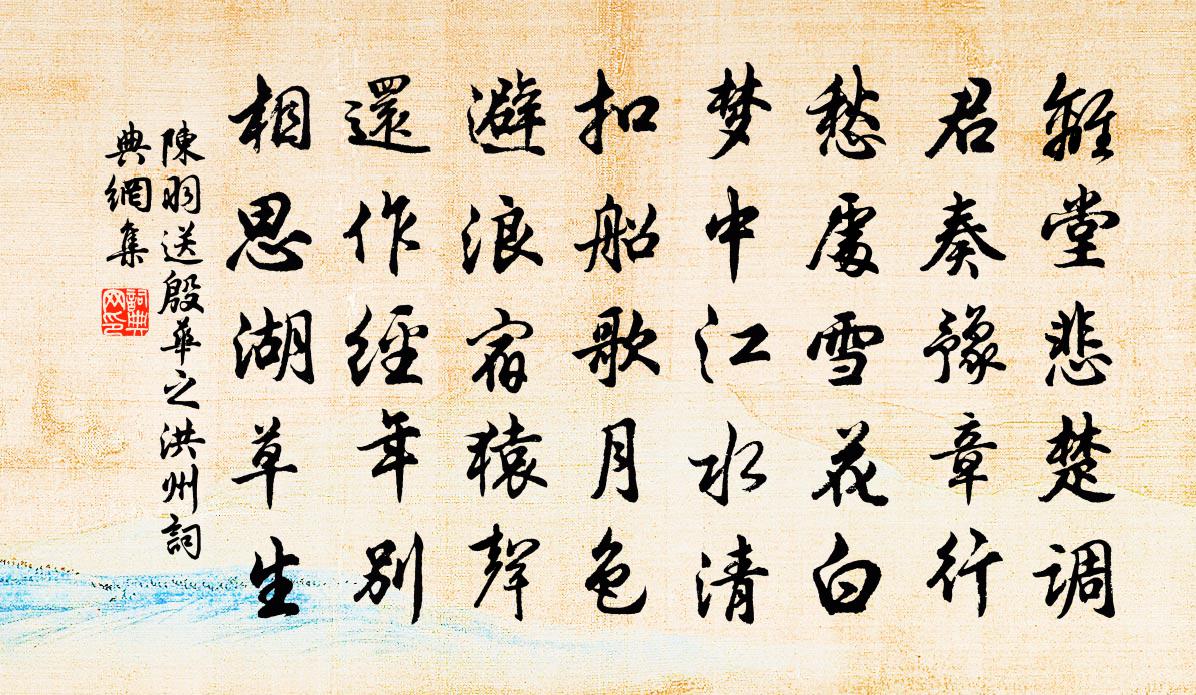 離堂悲楚调
君奏豫章行
愁處雪花白
梦中江水清
扣船歌月色
避浪宿猿聲
還作經年別
相思湖草生
陳羽送殷華之洪州詞
典網集
詞典
网印